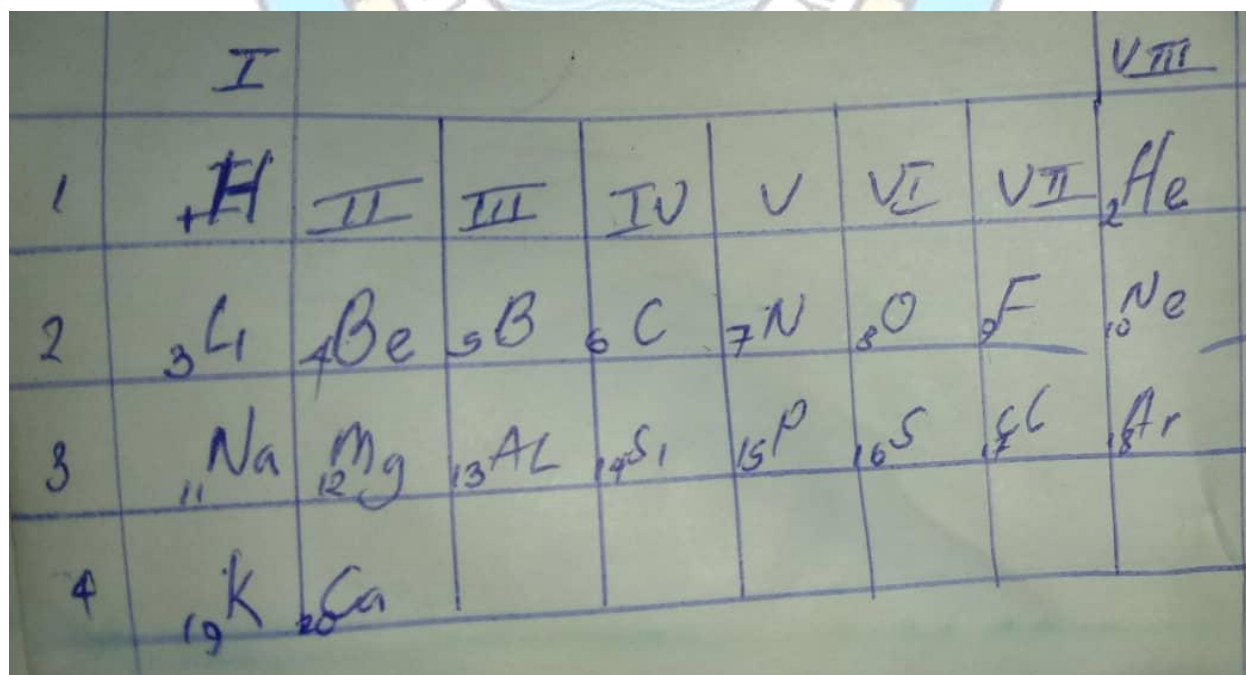 I VIII
1 1H II III IV V VI VII 2He
2 3Li 4Be 5B 6C 7N 8O 9F 10Ne
3 11Na 12Mg 13AL 14Si 15P 16S 17Cl 18Ar
4 19K 20Ca